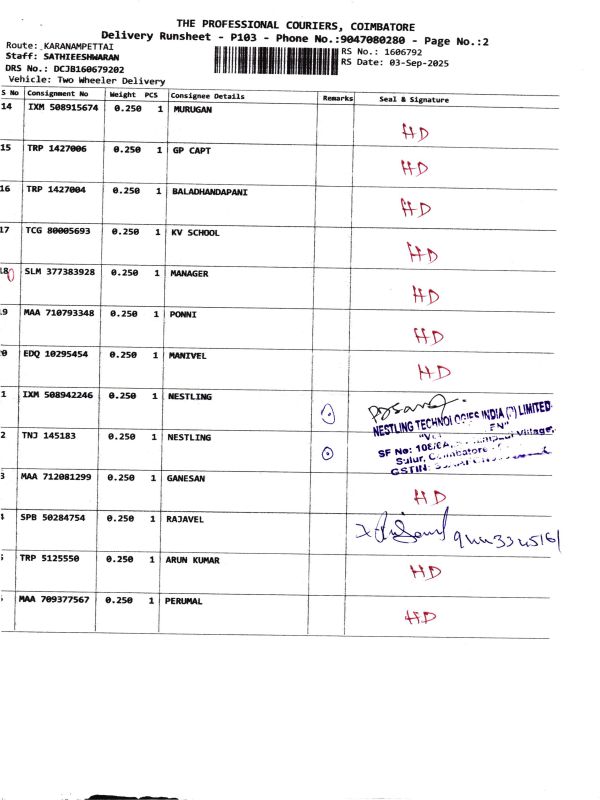 THE PROFESSIONAL COURIERS, COIMBATORE
Delivery Runsheet - P103 - Phone No.:9047080280 - Page No.:2
Route: KARANAMPETTAI
RS No.: 1606792
Staff: SATHIEESHWARAN
RS Date: 03-Sep-2025
DRS No.: DCJB160679202
Vehicle: Two Wheeler Delivery
S No Consignment No Weight PCS Consignee Details Remarks Seal & Signature
14 IXM 508915674 0.250 1 MURUGAN
HD
15 TRP 1427006 0.250 1 GP CAPT
HD
16 TRP 1427004 0.250 1 BALADHANDAPANI
HD
17 TCG 80005693 0.250 1 KV SCHOOL
HD
18 SLM 377383928 0.250 1 MANAGER
HD
9 MAA 710793348 0.250 1 PONNI
HD
0 EDQ 10295454 0.250 1 MANIVEL
HD
1 IXM 508942246 0.250 1 NESTLING
NESTLING TECHNOLOGIES INDIA (P) LIMITED
2 TNJ 145183 0.250 1 NESTLING
SF No: Village,
Sulur, Coimbatore
GSTIN:
3 MAA 712081299 0.250 1 GANESAN
HD
4 SPB 50284754 0.250 1 RAJAVEL
5 TRP 5125550 0.250 1 ARUN KUMAR
HD
MAA 709377567 0.250 1 PERUMAL
HD